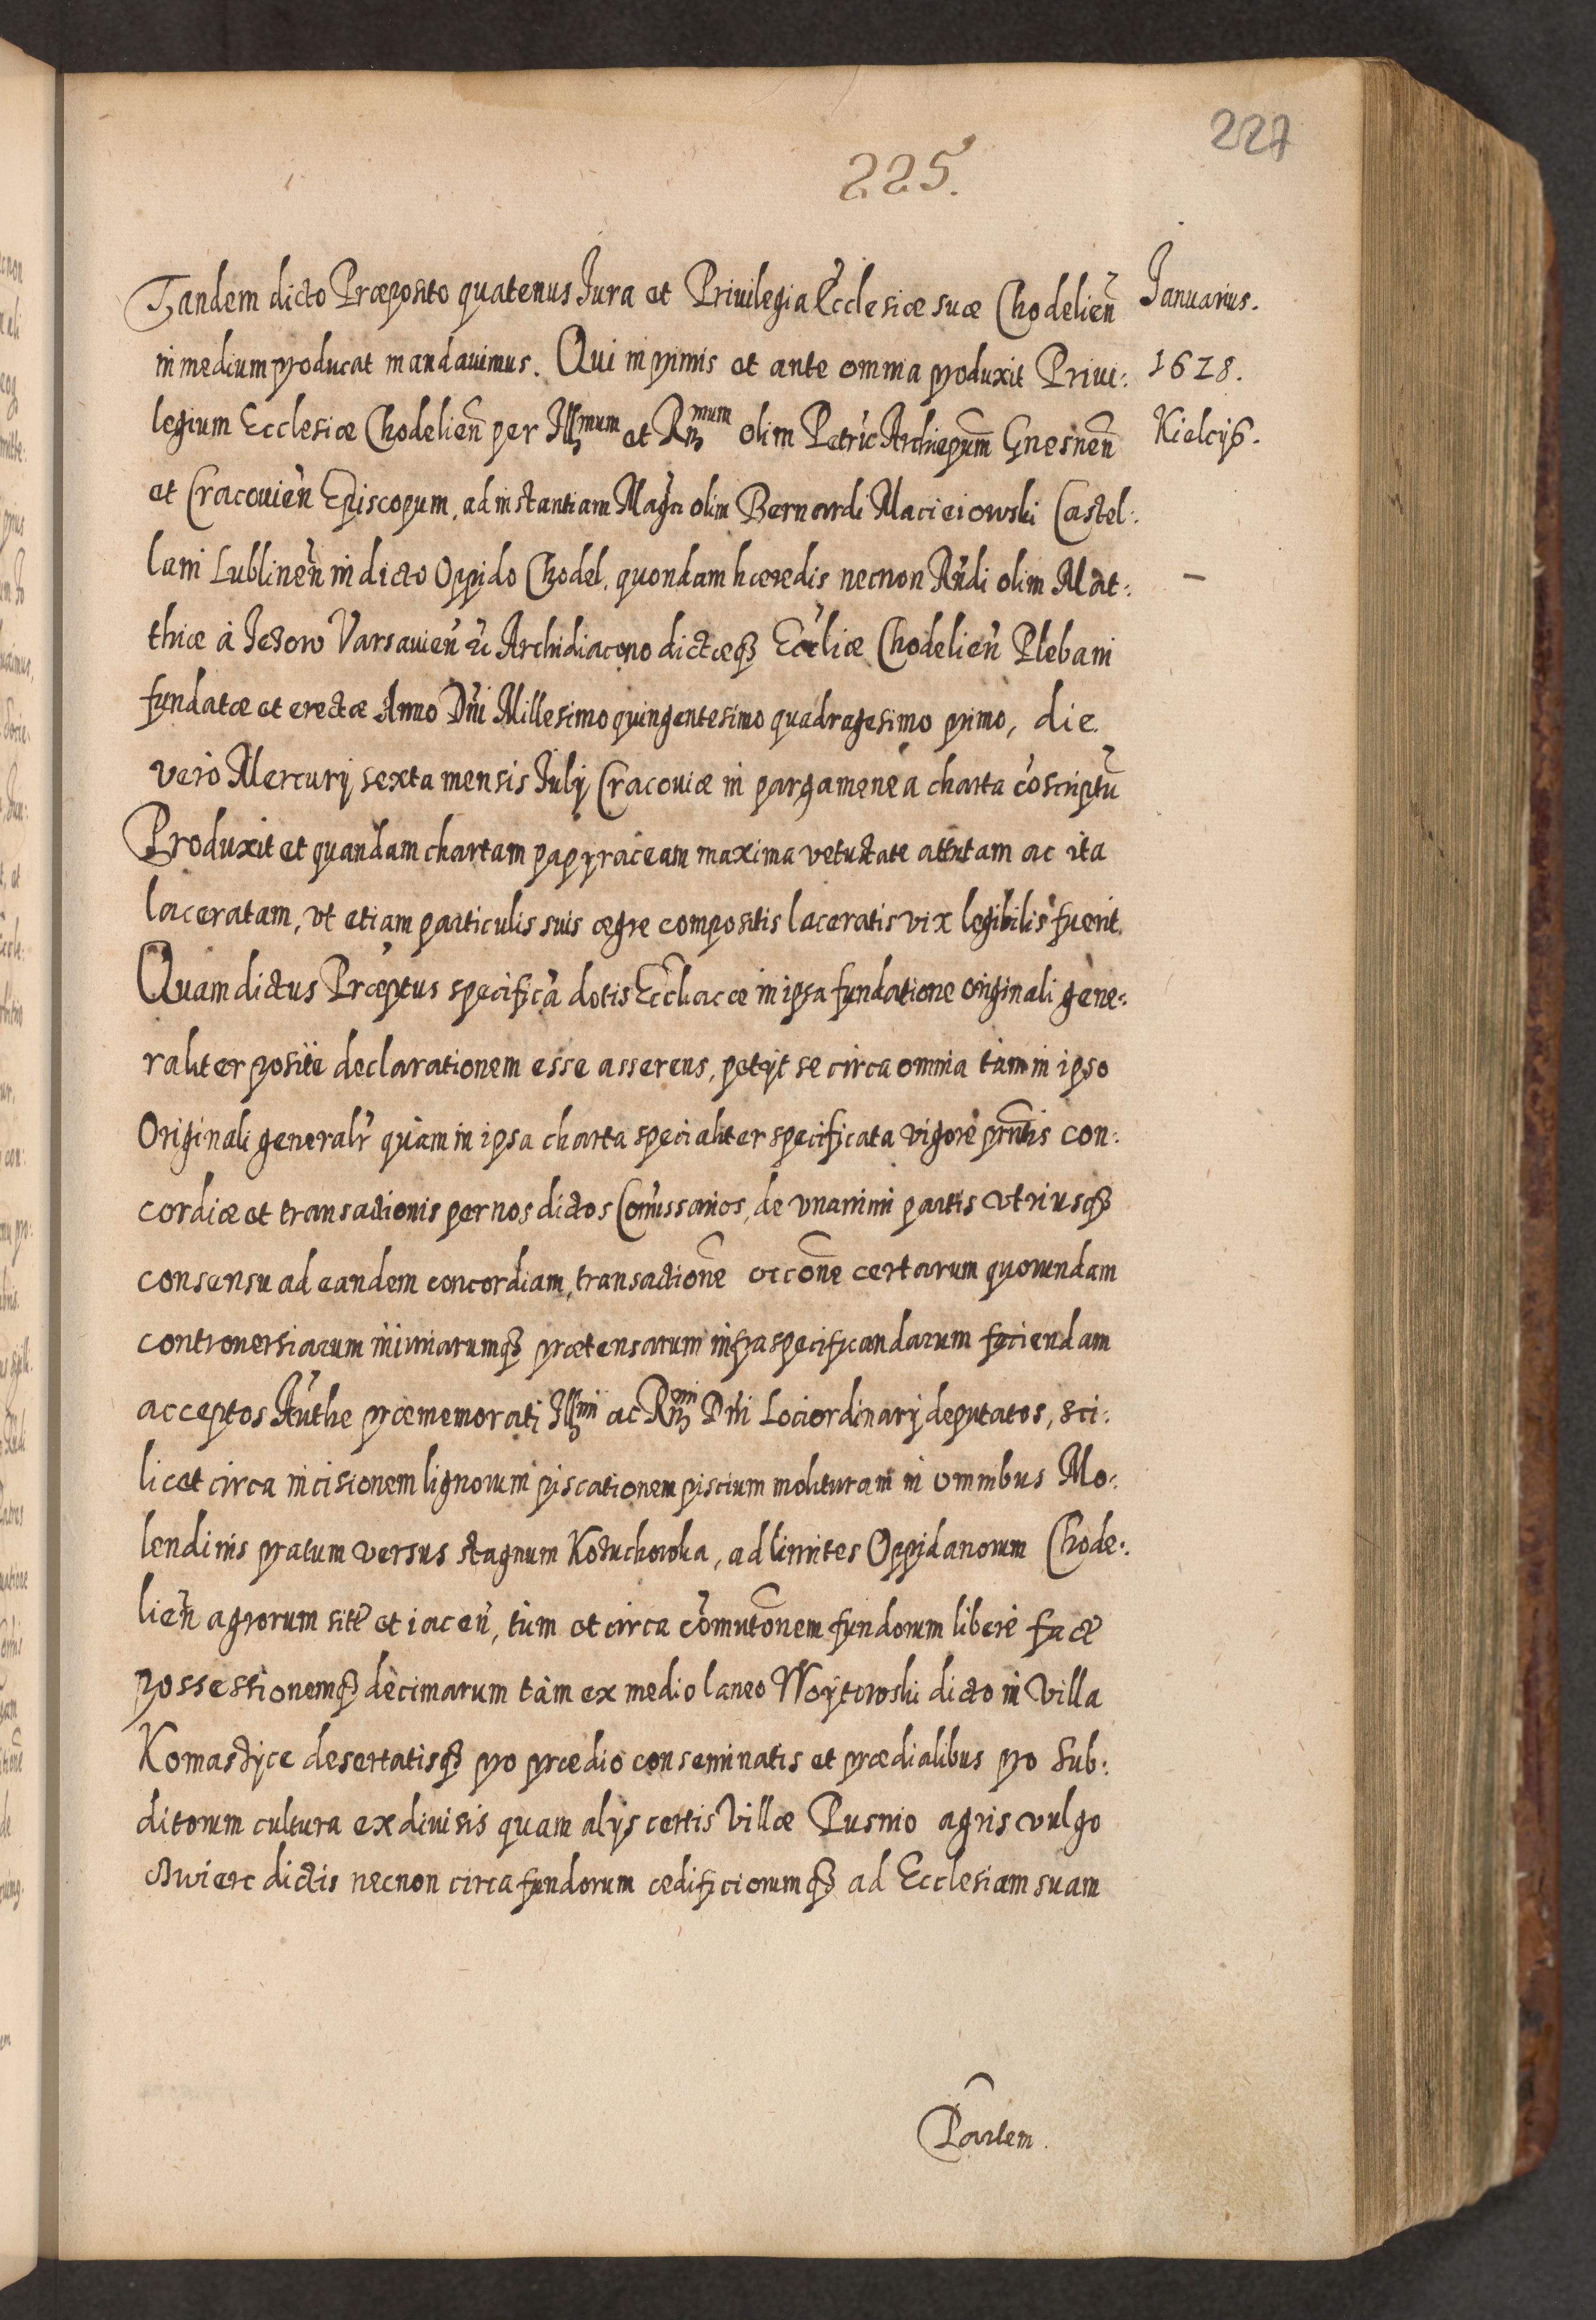 227
225.
Tandem dicto Præposito quatenus Iura et Priuilegia Ecclesiæ suæ Chodelien̄ Ianuarius.
in medium producat mandauimus. Qui in primis et ante omnia produxit Priui: 1628.
legium Ecclesiæ Chodelien̄ per Illmum et Rmum olim Petrū Archiepum̄ Gnesnen̄ Kielcijs.
et Cracouien̄ Episcopum, ad instantiam Magci olim Bernardi Macieiowski Castel:
lani Lublinen̄ in dicto Oppido Chodel. quondam hæredis necnon Rn̄di olim Mat:
thiæ à Iezow Varsauien̄ &c Archidiacono dictæq₃ Eccliæ Chodelien̄ Plebani
fundatæ et erectæ Anno Dn̄i Millesimo quingentesimo quadragesimo primo, die
verò Mercurij sexta mensis Iulij Cracouiæ in pargamenea charta cōscriptū
Produxit et quandam chartam papyraceam maxima vetustate attritam ac ita
laceratam, vt etiam particulis suis ægre compositis laceratis vix legibilis fuerit.
Quam dictus Præptus specificā dotis Eccliac æ in ipsa fundatione originali gene:
raliter positæ declarationem esse asserens, petijt se circa omnia tam in ipso
Originali generalr quàm in ipsa charta specialiter specificata vigore prn̄tis con:
cordiæ et transactionis per nos dictos Com̄issarios, de vnanimi partis vtriusq₃
consensu ad eandem concordiam, transactionē occōne certarum quorundam
controuersiarum iniuriarumq₃ prætensarum infra specificandarum faciendam
acceptos Authe præmemorati Illmi ac Rmi Dn̄i Lociordinarij deputatos, sci:
licet circa incisionem lignorum piscationem piscium molituram in omnibus Mo:
lendinis pratum versus stagnum Kotuchowka, ad limites Oppidanorum Chode:
lien̄ agrorum sitū et iacen̄, tùm et circa com̄utōnem fundorum liberè facæ
possessionemq₃ decimarum tàm ex medio laneo Woytowski dicto in Villa
Komaszyce desertatisq₃ pro prædio conseminatis et prædialibus pro sub:
ditorum cultura ex diuisis quam alijs certis Villæ Pusnio agris vulgo
Cwierc dictis necnon circa fundorum ædificiorumq₃ ad Ecclesiam suam
Partem.